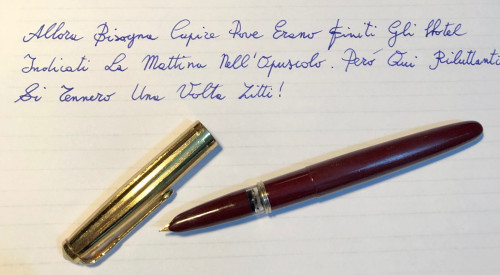 Allora Bisogna Capire Dove Erano Finiti Gli Hotel
Indicati La Mattina Nell'Opuscolo. Però Qui Riluttanti
Si Tennero Una Volta Zitti!